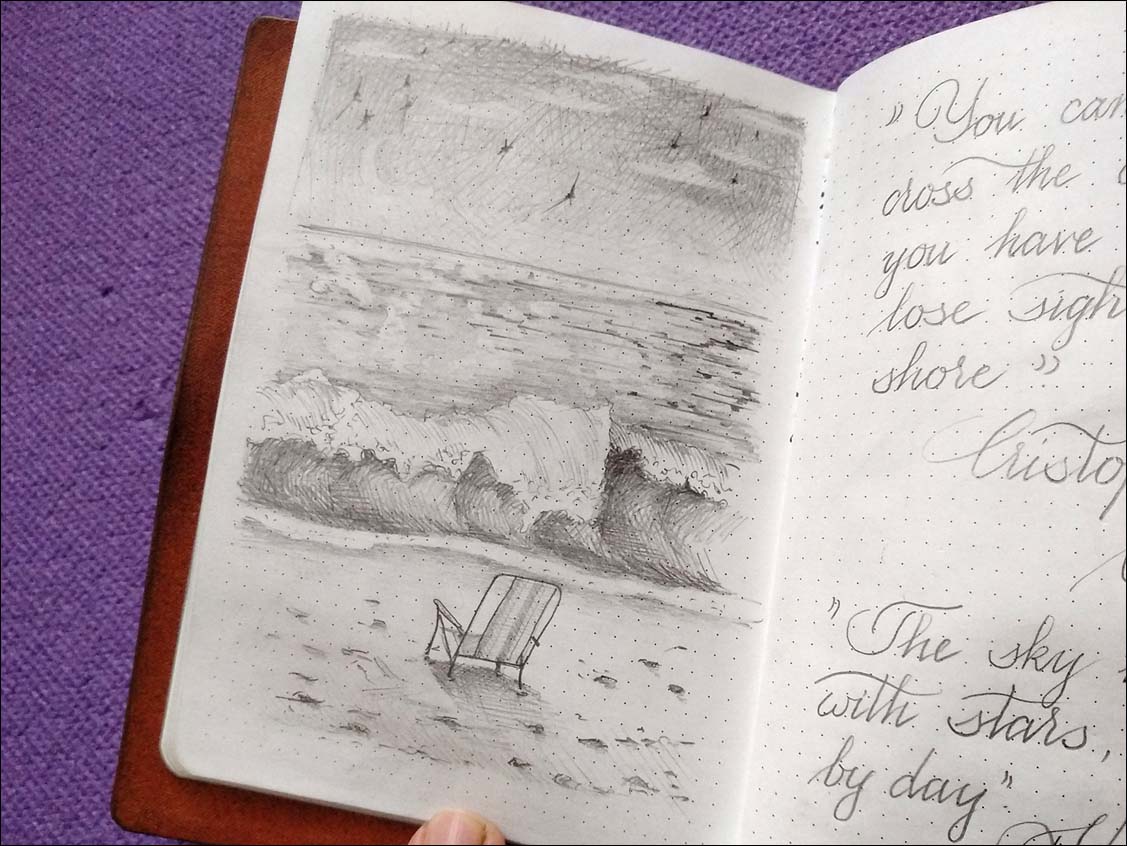 "You can
cross the
you have
lose sigh
shore"
Cristop
"The sky
with stars,
by day"